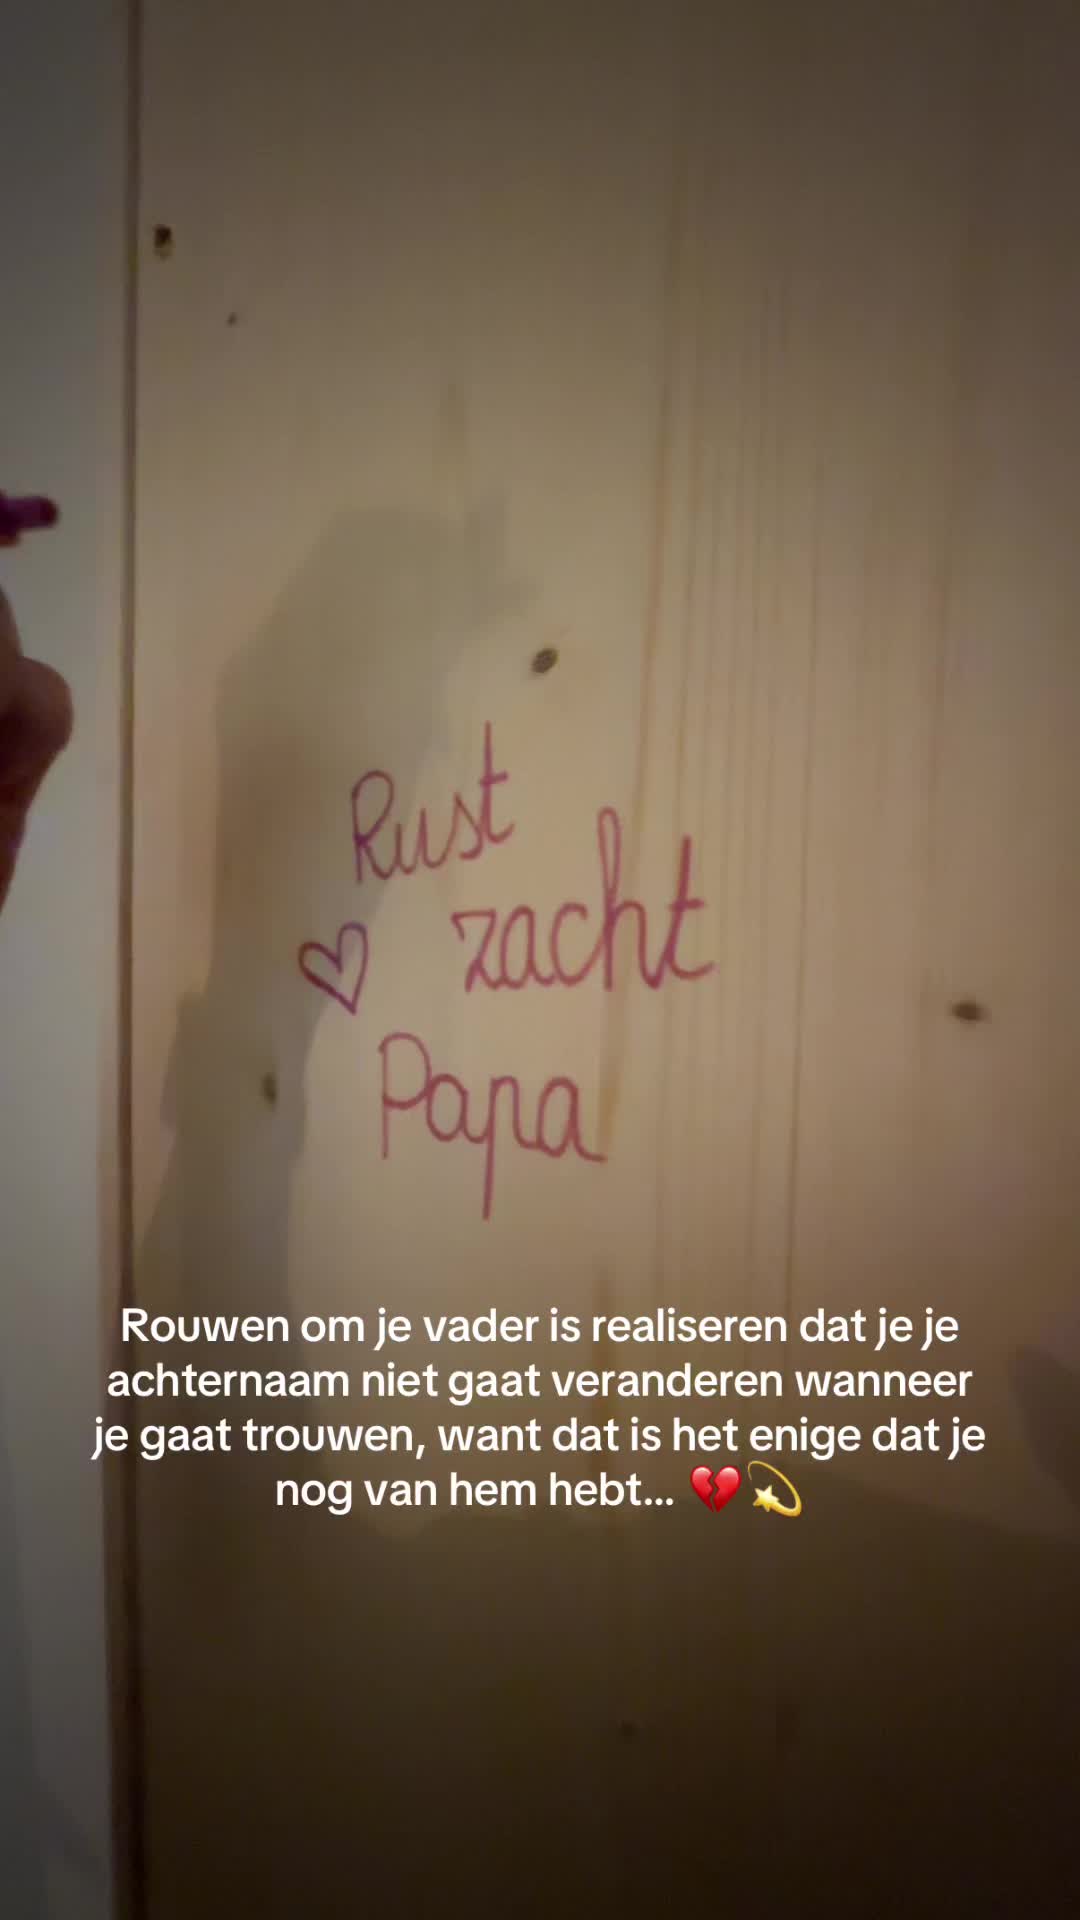 Rust
♡ zacht
Papa
Rouwen om je vader is realiseren dat je je
achternaam niet gaat veranderen wanneer
je gaat trouwen, want dat is het enige dat je
nog van hem hebt... 💔💫